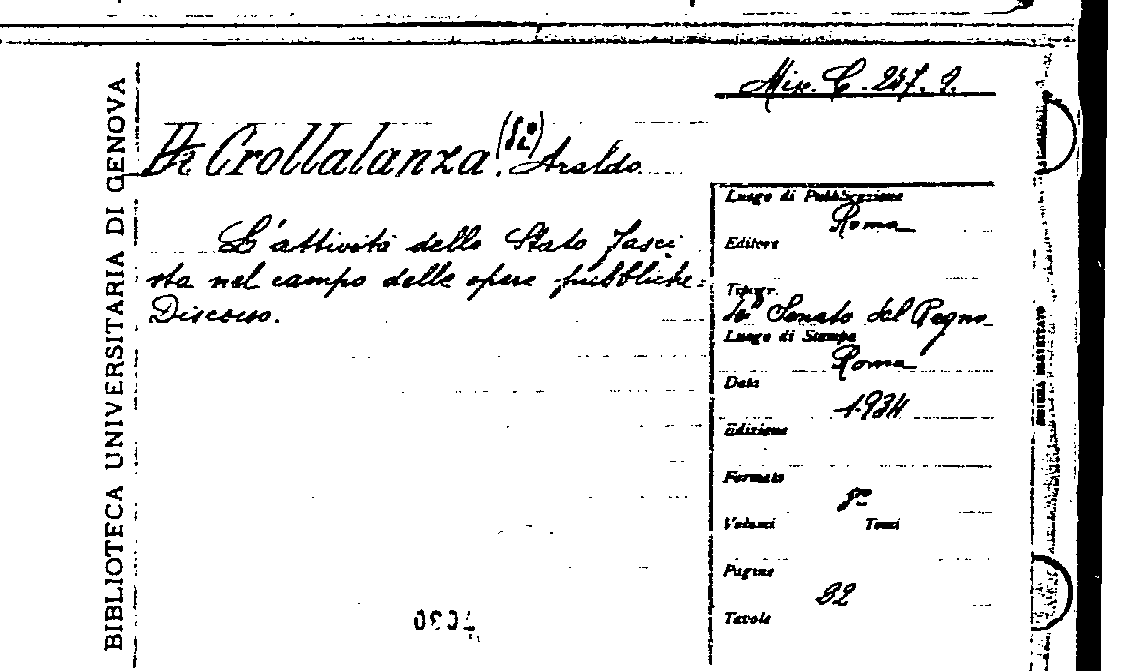 BIBLIOTECA UNIVERSITARIA DI GENOVA
Mix. C. 247. 9.
Di Crollalanza, Araldo.
L'attività dello Stato Fasci
sta nel campo delle opere pubbliche:
Discorso.
Luogo di Pubblicazione
Roma
Editore
Tipogr.
Senato del Regno
Luogo di Stampa
Roma
Data
1934
Edizione
Formato
8º
Volumi Tomi
Pagine
32
Tavole